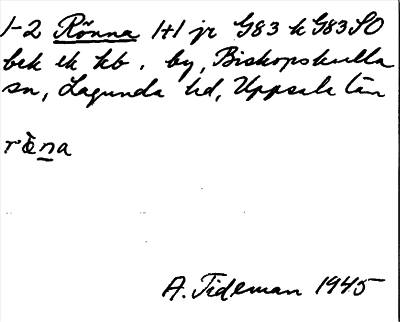 1-2 Rönna 1+1 jr G83 k G83SO
bek ek kb. by, Biskopskulla
sn, Lagunda hd, Uppsala län
röna
A. Tideman 1945